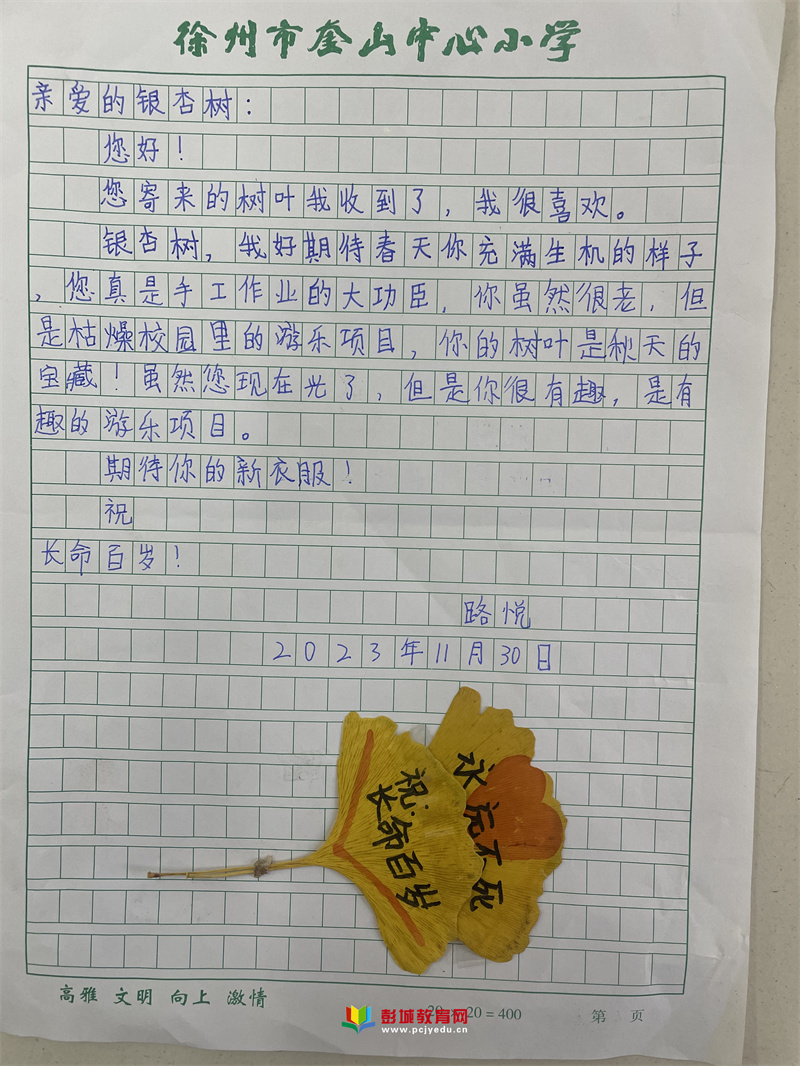 徐州市奎山中心小学
亲爱的银杏树：
您好！
您寄来的树叶我收到了，我很喜欢。
银杏树，我好期待春天你充满生机的样子
，您真是手工作业的大功臣，你虽然很老，但
是枯燥校园里的游乐项目，你的树叶是秋天的
宝藏！虽然您现在光了，但是你很有趣，是有
趣的游乐项目。
期待你的新衣服！
祝
长命百岁！
路悦
2023年11月30日
祝：
长命百岁
永远不死
高雅 文明 向上 激情
20=400
第 页
彭城教育网
www.pcjyedu.cn